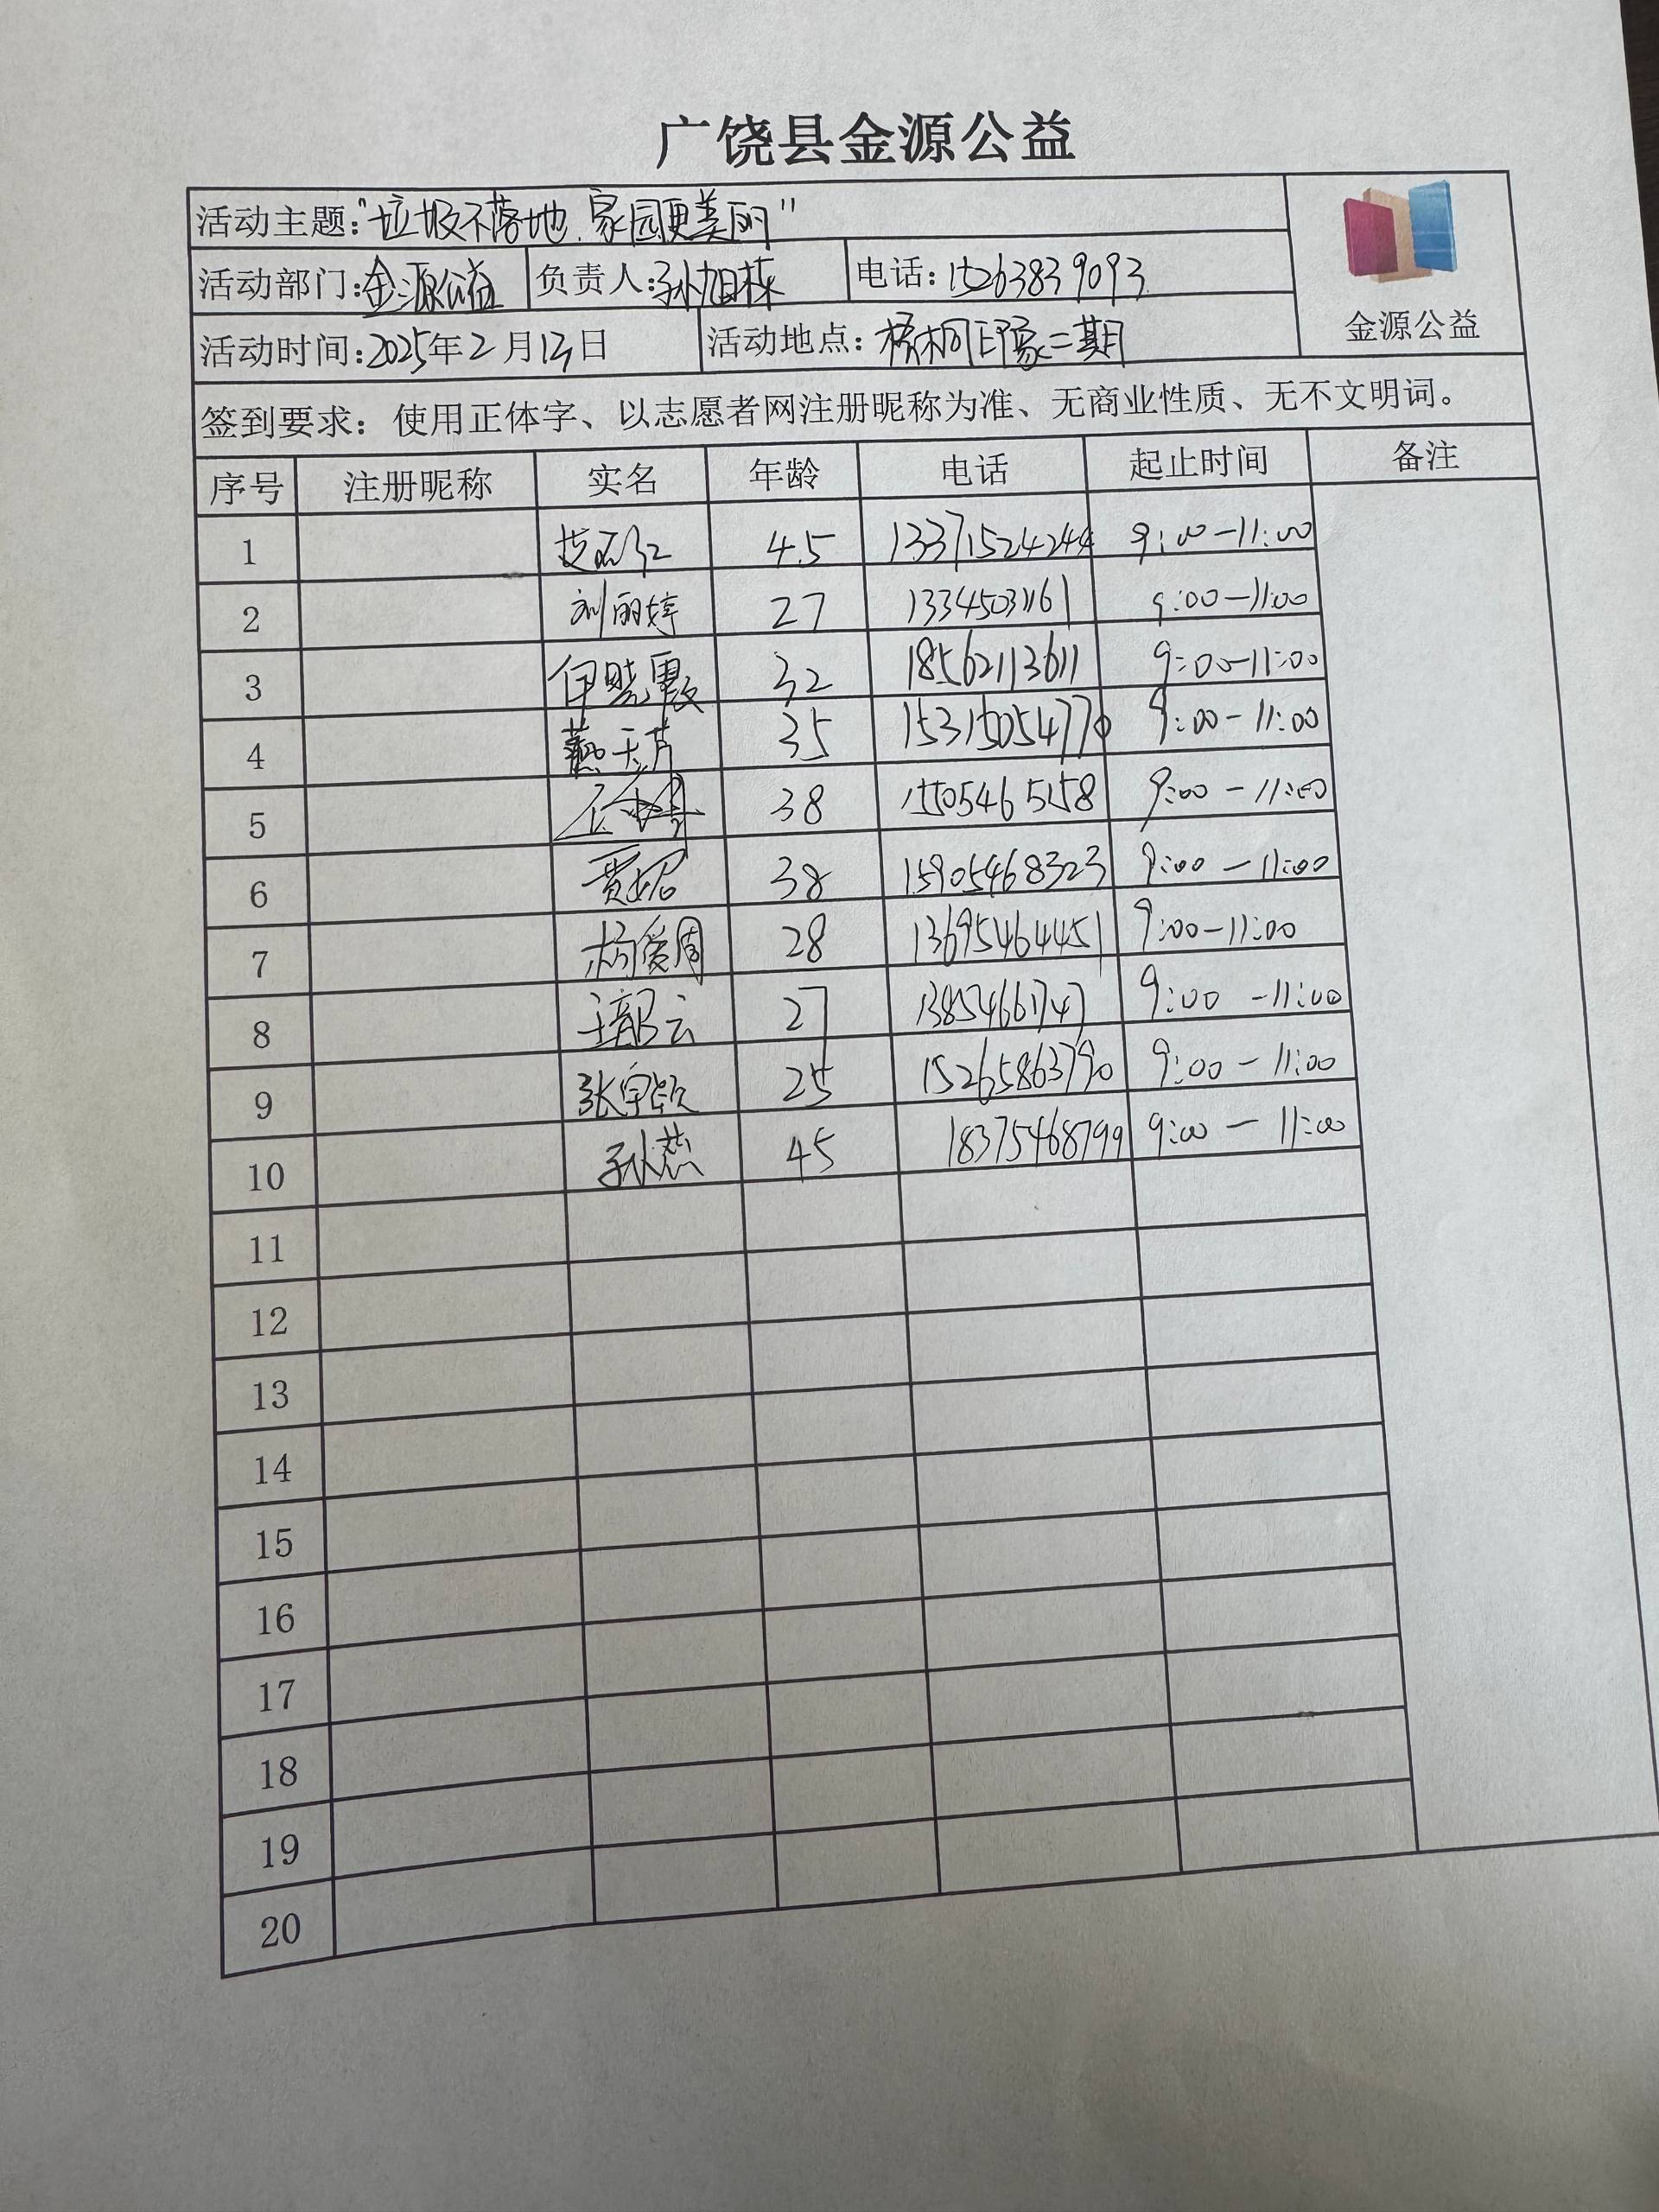 广饶县金源公益
活动主题:"垃圾不落地.家园更美丽"
活动部门:金源公益 负责人:孙旭栋 电话:15263839093
活动时间:2025年2月13日 活动地点:梧桐印象二期
金源公益
签到要求:使用正体字、以志愿者网注册昵称为准、无商业性质、无不文明词。
序号 注册昵称 实名 年龄 电话 起止时间 备注
1 45 13371524244 9:00-11:00
2 刘丽婷 27 13345031161 9:00-11:00
3 伊晓霞 32 18562113611 9:00-11:00
4 燕 芹 35 15315054770 9:00-11:00
5 38 15505465158 9:00-11:00
6 贾 38 15905468323 9:00-11:00
7 杨爱周 28 13695464451 9:00-11:00
8 王 云 27 13854661747 9:00-11:00
9 张宇 25 15265863790 9:00-11:00
10 孙燕 45 18375468799 9:00-11:00
11
12
13
14
15
16
17
18
19
20